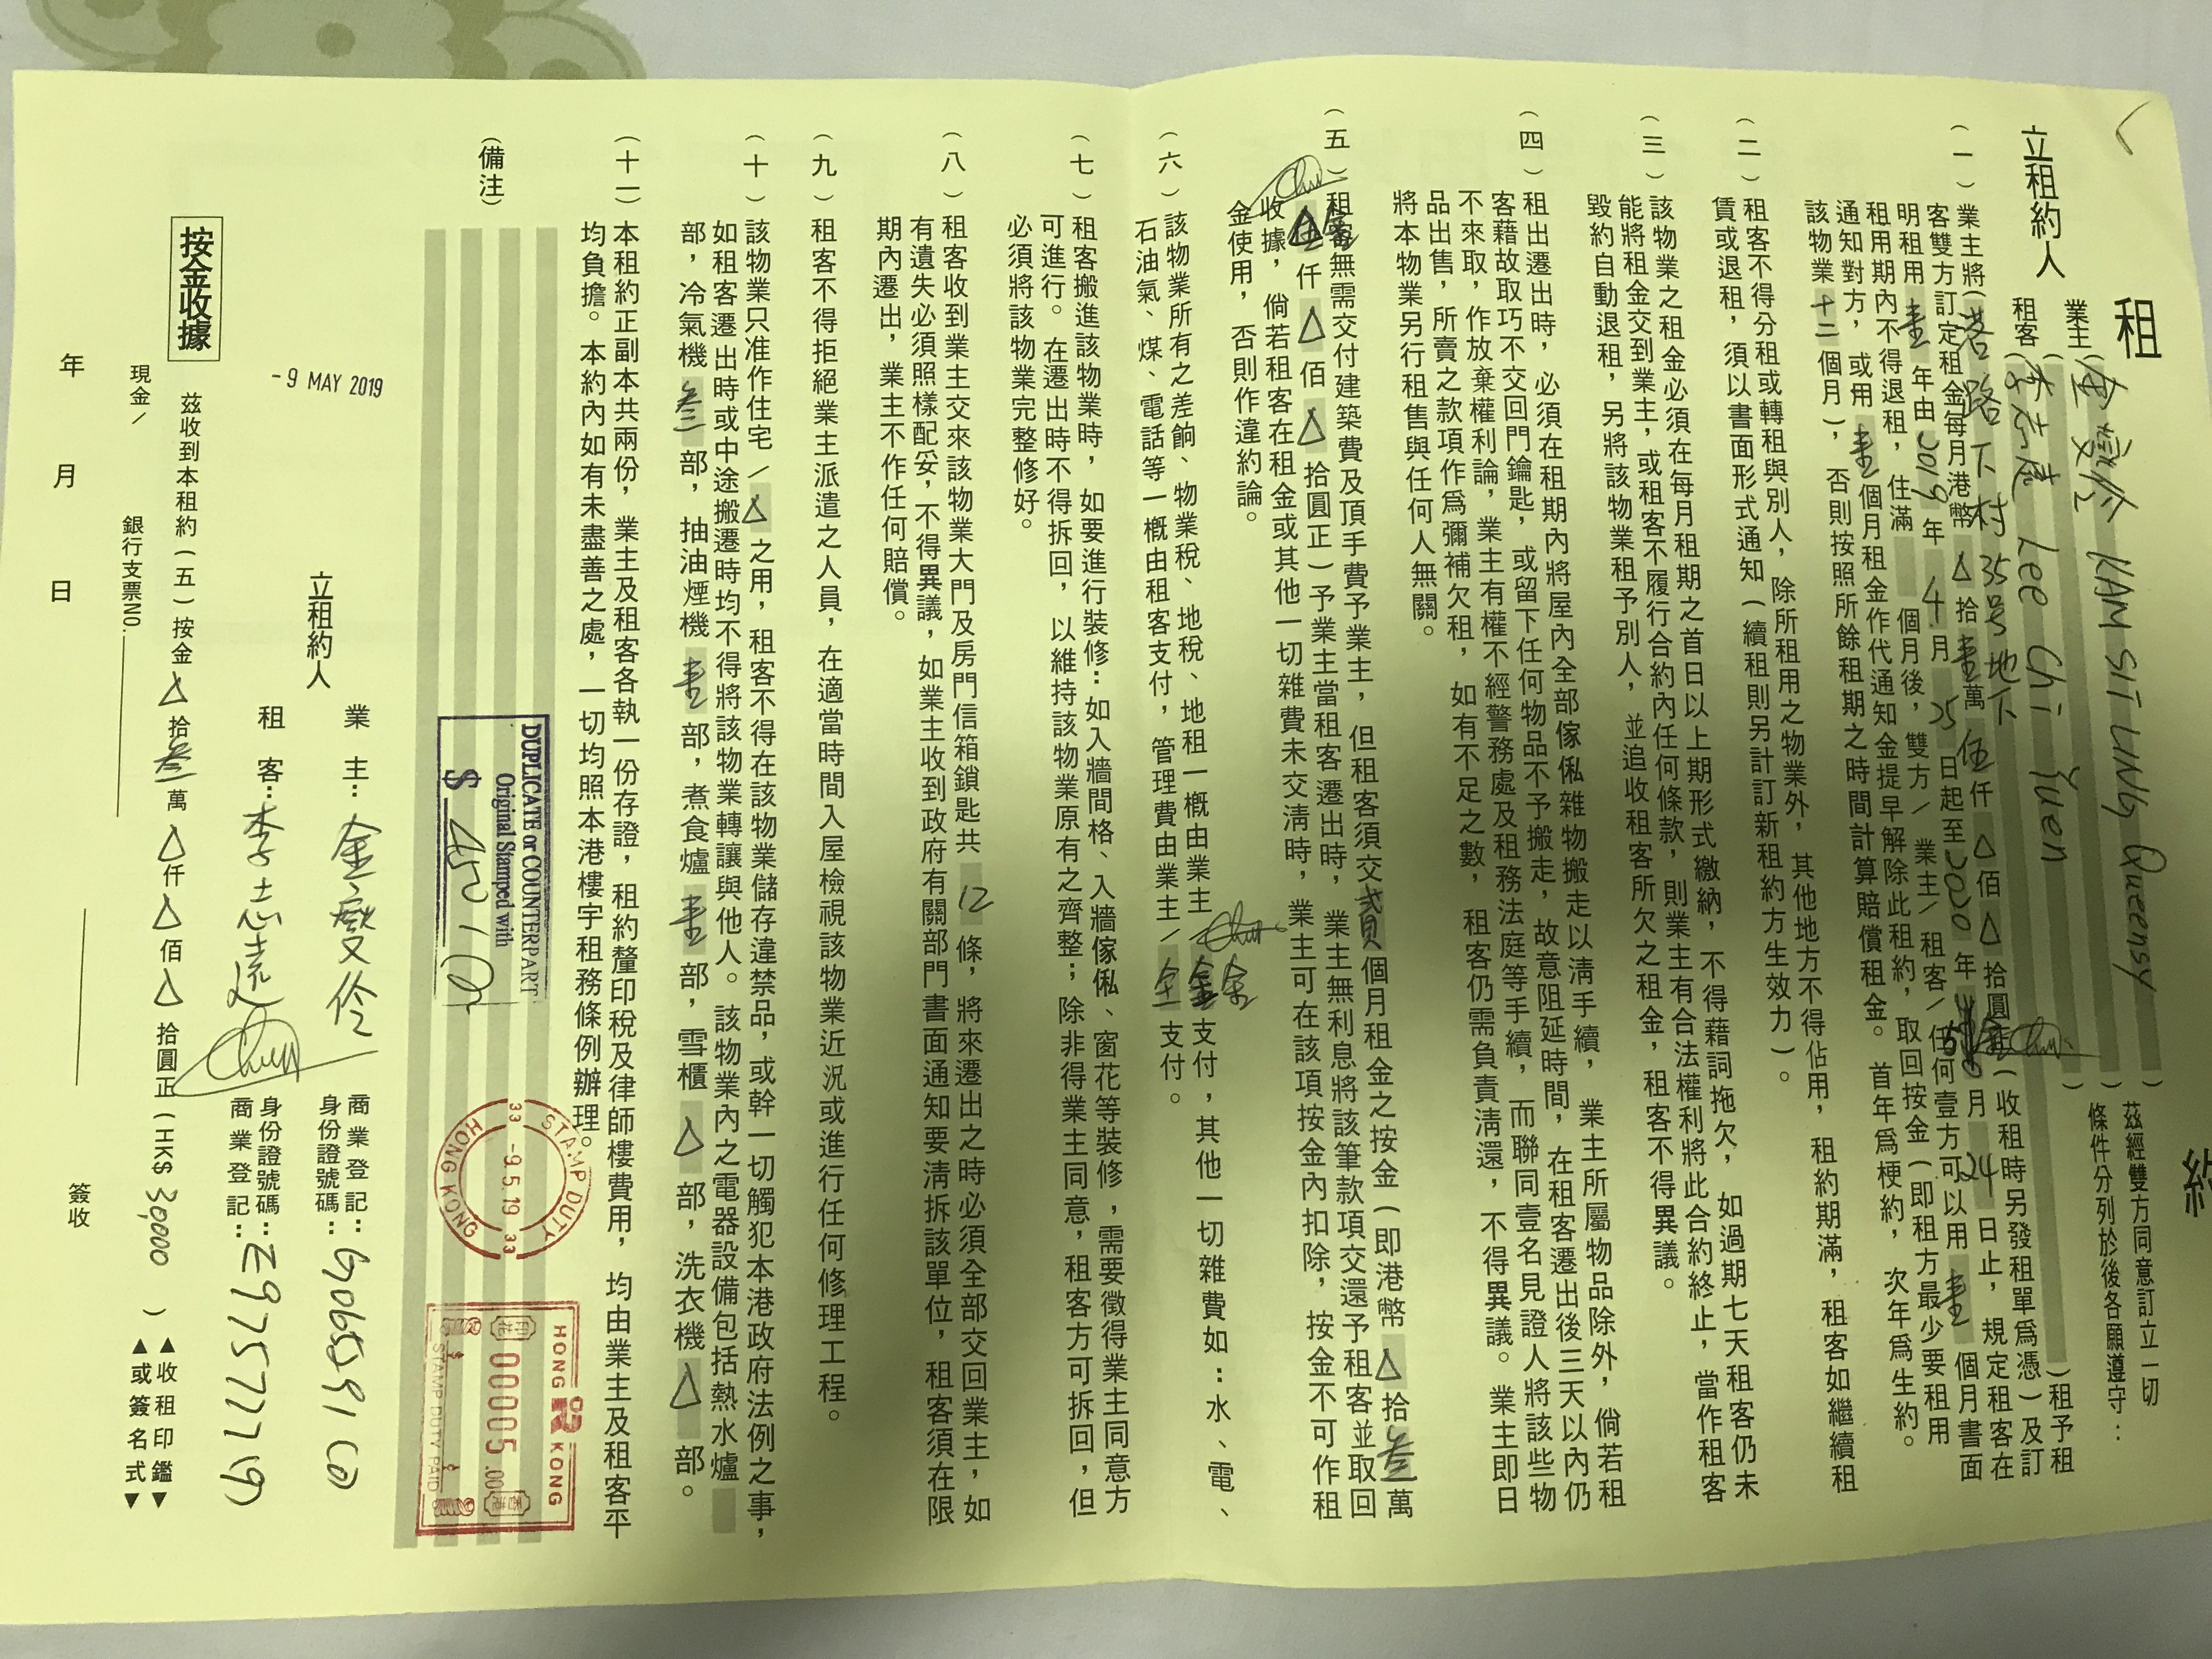 租 約
立租約人
業主(金璦伶 KAM SIT LING Queensy)
租客(李志遠 Lee Chi Yuen)
茲經雙方同意訂立一切
條件分列於後各願遵守:
(一)業主將(港路下村35号地下)租予租
客雙方訂定租金每月港幣△拾壹萬伍仟△佰△拾圓正(收租時另發租單爲憑)及訂
明租用壹年由2019年4月25日起至2020年 月24日止,規定租客在
租用期內不得退租,住滿 個月後,雙方/業主/租客/任何壹方可以用壹個月書面
通知對方,或用壹個月租金作代通知金提早解除此租約,取回按金(即租方最少要租用
該物業十二個月),否則按照所餘租期之時間計算賠償租金。首年爲梗約,次年爲生約。
(二)租客不得分租或轉租與別人,除所租用之物業外,其他地方不得佔用,租約期滿,租客如繼續租
賃或退租,須以書面形式通知(續租則另計訂新租約方生效力)。
(三)該物業之租金必須在每月租期之首日以上期形式繳納,不得藉詞拖欠,如過期七天租客仍未
能將租金交到業主,或租客不履行合約內任何條款,則業主有合法權利將此合約終止,當作租客
毀約自動退租,另將該物業租予別人,並追收租客所欠之租金,租客不得異議。
(四)租出遷出時,必須在租期內將屋內全部傢俬雜物搬走以清手續,業主所屬物品除外,倘若租
客藉故取巧不交回門鑰匙,或留下任何物品不予搬走,故意阻延時間,在租客遷出後三天以內仍
不來取,作放棄權利論,業主有權不經警務處及租務法庭等手續,而聯同壹名見證人將該些物
品出售,所賣之款項作爲彌補欠租,如有不足之數,租客仍需負責清還,不得異議。業主即日
將本物業另行租售與任何人無關。
(五)租客無需交付建築費及頂手費予業主,但租客須交貳個月租金之按金(即港幣△拾叁萬
△仟△佰△拾圓正)予業主當租客遷出時,業主無利息將該筆款項交還予租客並取回
收據,倘若租客在租金或其他一切雜費未交清時,業主可在該項按金內扣除,按金不可作租
金使用,否則作違約論。
(六)該物業所有之差餉、物業稅、地稅、地租一概由業主/ 支付,其他一切雜費如:水、電、
石油氣、煤、電話等一概由租客支付,管理費由業主/ 支付。
(七)租客搬進該物業時,如要進行裝修:如入牆間格、入牆傢俬、窗花等裝修,需要徵得業主同意方
可進行。在遷出時不得拆回,以維持該物業原有之齊整;除非得業主同意,租客方可拆回,但
必須將該物業完整修好。
(八)租客收到業主交來該物業大門及房門信箱鎖匙共12條,將來遷出之時必須全部交回業主,如
有遺失必須照樣配妥,不得異議,如業主收到政府有關部門書面通知要清拆該單位,租客須在限
期內遷出,業主不作任何賠償。
(九)租客不得拒絕業主派遣之人員,在適當時間入屋檢視該物業近況或進行任何修理工程。
(十)該物業只准作住宅/△之用,租客不得在該物業儲存違禁品,或幹一切觸犯本港政府法例之事,
如租客遷出時或中途搬遷時均不得將該物業轉讓與他人。該物業內之電器設備包括熱水爐
部,冷氣機叁部,抽油煙機壹部,煮食爐壹部,雪櫃△部,洗衣機△部。
(十一)本租約正副本共兩份,業主及租客各執一份存證,租約釐印稅及律師樓費用,均由業主及租客平
均負擔。本約內如有未盡善之處,一切均照本港樓宇租務條例辦理。
(備注)
DUPLICATE or COUNTERPART
Original Stamped with
$ 450/
STAMP DUTY
33 -9.5.19 33
HONG KONG
HONG KONG
00005.00
STAMP DUTY PAID
-9 MAY 2019
立租約人
業主:金璦伶 商業登記:
身份證號碼:G066591(0)
租客:李志遠 身份證號碼:Z975777(9)
商業登記:
按金收據
茲收到本租約(五)按金△拾叁萬△仟△佰△拾圓正(HK$ 30,000 )
現金/ 銀行支票NO.
▲收租印鑑▼
▲或簽名式▼
年 月 日 簽收